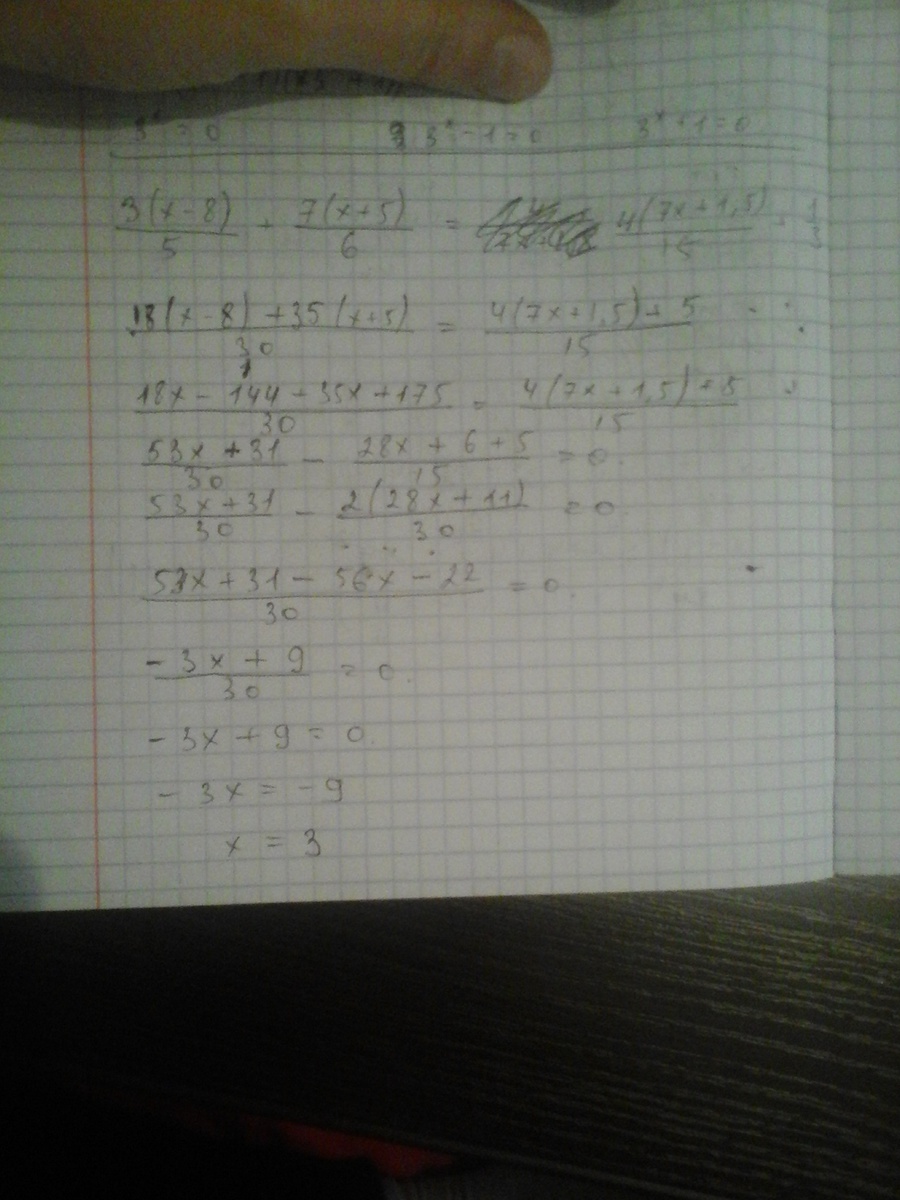 3ˣ = 0 3·3ˣ - 1 = 0 3ˣ + 1 = 0
3(x-8)/5 + 7(x+5)/6 = 4(7x+1,5)/15 + 1/3
18(x-8) + 35(x+5)/30 = 4(7x+1,5) + 5/15
18x - 144 + 35x + 175/30 = 4(7x+1,5) + 5/15
53x + 31/30 - 28x + 6 + 5/15 = 0.
53x + 31/30 - 2(28x + 11)/30 = 0
53x + 31 - 56x - 22/30 = 0.
-3x + 9/30 = 0.
-3x + 9 = 0.
-3x = -9
x = 3